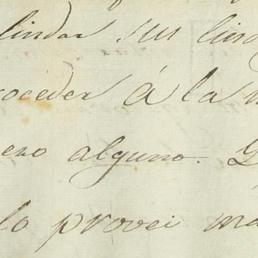 lindar sus lind
oceder á la
eso alguno.
lo proveí ma